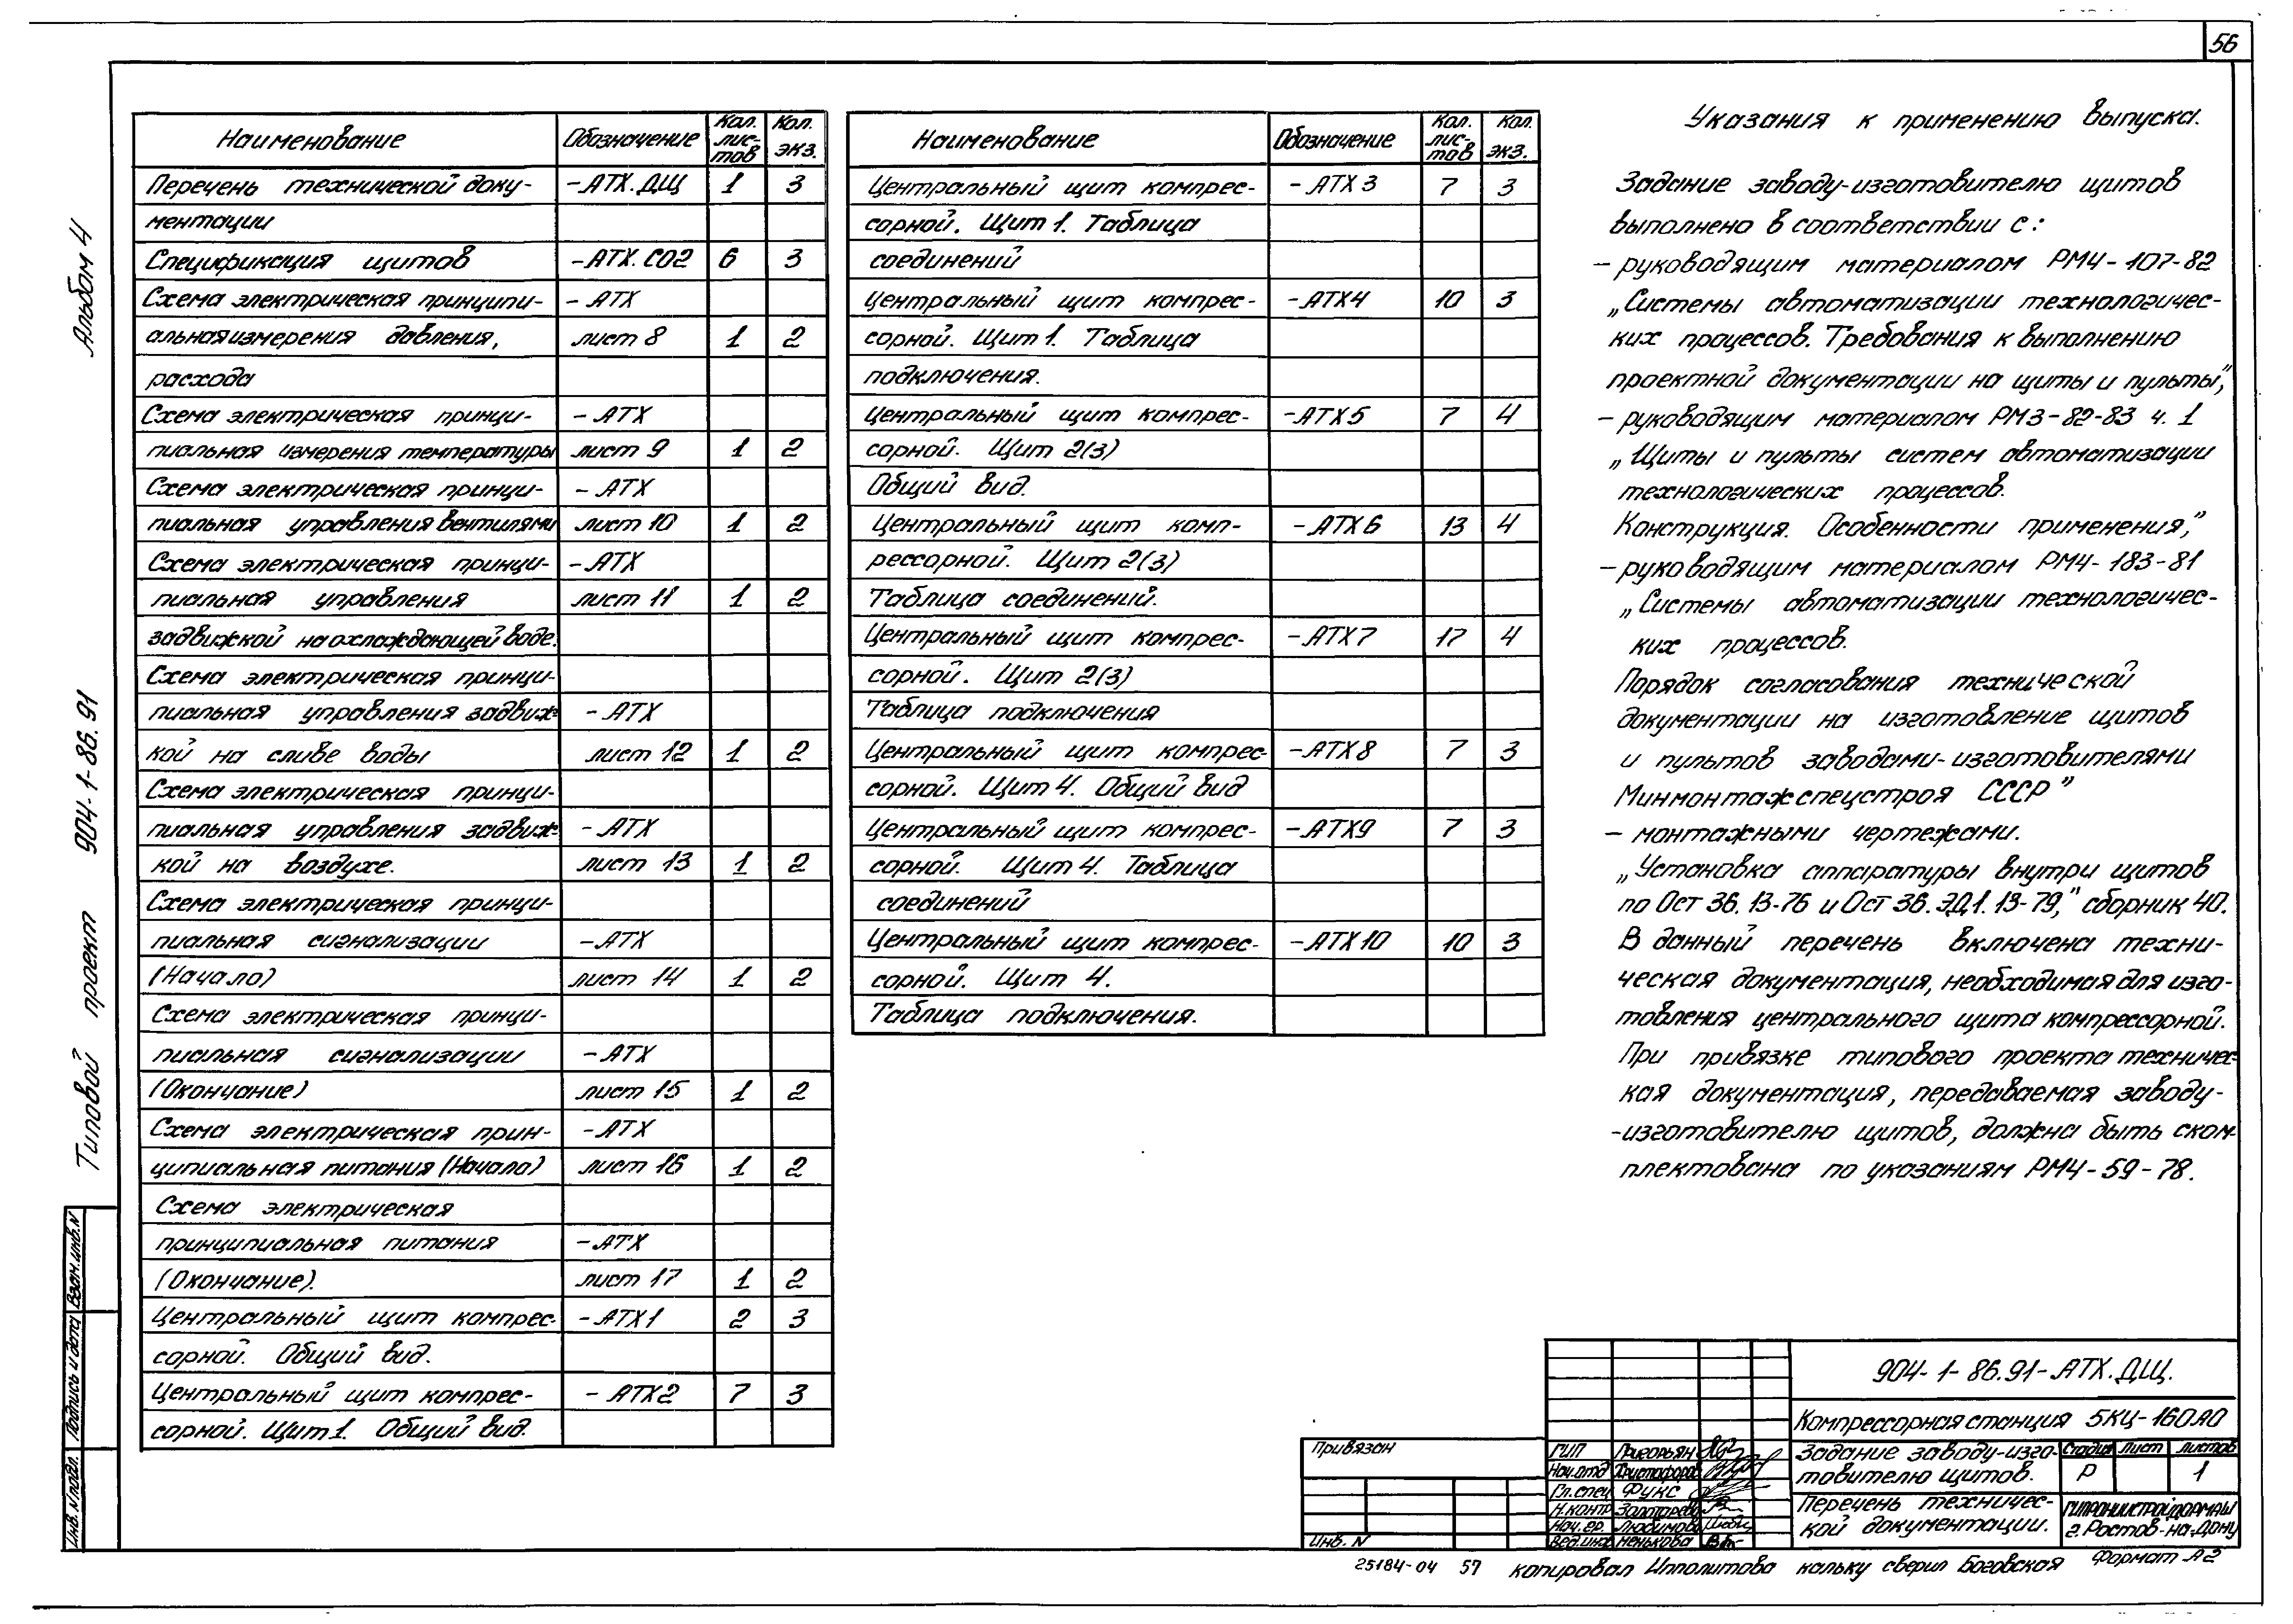 56
Альбом 4
Типовой проект 904-1-86.91
Взам.инв.N
Подпись и дата
Инв.N подл.
Наименование Обозначение Кол. лис-тов Кол. экз.
Перечень технической доку- -АТХ.ДЩ 1 3
ментации
Спецификация щитов -АТХ.СО2 6 3
Схема электрическая принципи- -АТХ
альная измерения давления, лист 8 1 2
расхода
Схема электрическая принци- -АТХ
пиальная измерения температуры лист 9 1 2
Схема электрическая принци- -АТХ
пиальная управления вентилями лист 10 1 2
Схема электрическая принци- -АТХ
пиальная управления лист 11 1 2
задвижкой на охлаждающей воде.
Схема электрическая принци-
пиальная управления задвиж- -АТХ
кой на сливе воды лист 12 1 2
Схема электрическая принци-
пиальная управления задвиж- -АТХ
кой на воздухе. лист 13 1 2
Схема электрическая принци-
пиальная сигнализации -АТХ
(Начало) лист 14 1 2
Схема электрическая принци-
пиальная сигнализации -АТХ
(Окончание) лист 15 1 2
Схема электрическая прин- -АТХ
ципиальная питания (Начало) лист 16 1 2
Схема электрическая
принципиальная питания -АТХ
(Окончание). лист 17 1 2
Центральный щит компрес- -АТХ1 2 3
сорной. Общий вид.
Центральный щит компрес- -АТХ2 7 3
сорной. Щит 1. Общий вид.
Наименование Обозначение Кол. лис-тов Кол. экз.
Центральный щит компрес- -АТХ3 7 3
сорной. Щит 1. Таблица
соединений
Центральный щит компрес- -АТХ4 10 3
сорной. Щит 1. Таблица
подключения.
Центральный щит компрес- -АТХ5 7 4
сорной. Щит 2(3)
Общий вид.
Центральный щит комп- -АТХ6 13 4
рессорной. Щит 2(3)
Таблица соединений.
Центральный щит компрес- -АТХ7 17 4
сорной. Щит 2(3)
Таблица подключения
Центральный щит компрес- -АТХ8 7 3
сорной. Щит 4. Общий вид
Центральный щит компрес- -АТХ9 7 3
сорной. Щит 4. Таблица
соединений
Центральный щит компрес- -АТХ10 10 3
сорной. Щит 4.
Таблица подключения.
Указания к применению выпуска.
Задание заводу-изготовителю щитов
выполнено в соответствии с:
- руководящим материалом РМ4-107-82
„Системы автоматизации технологичес-
ких процессов. Требования к выполнению
проектной документации на щиты и пульты",
- руководящим материалом РМ3-82-83 ч. 1
„Щиты и пульты систем автоматизации
технологических процессов.
Конструкция. Особенности применения",
- руководящим материалом РМ4-183-81
„Системы автоматизации технологичес-
ких процессов.
Порядок согласования технической
документации на изготовление щитов
и пультов заводами-изготовителями
Минмонтажспецстроя СССР"
- монтажными чертежами.
„Установка аппаратуры внутри щитов
по Ост 36.13-76 и Ост 36.ЭД1.13-79", сборник 40.
В данный перечень включена техни-
ческая документация, необходимая для изго-
товления центрального щита компрессорной.
При привязке типового проекта техничес-
кая документация, передаваемая заводу-
-изготовителю щитов, должна быть ском-
плектована по указаниям РМ4-59-78.
Привязан
Инв. N
ГИП Григорьян
Нач.отд Христофоров
Гл.спец Фукс
Н.контр Золотарева
Нач.гр. Любимова
Вед.инж Менькова
904-1-86.91-АТХ.ДЩ.
Компрессорная станция 5КЦ-160А0
Задание заводу-изго-
товителю щитов.
Стадия Лист Листов
Р 1
Перечень техничес-
кой документации.
ГИПРОНИИСТРОЙДОРМАШ
г.Ростов-на-Дону
25184-04 57 копировал Ипполитова кальку сверил Боговская Формат А2